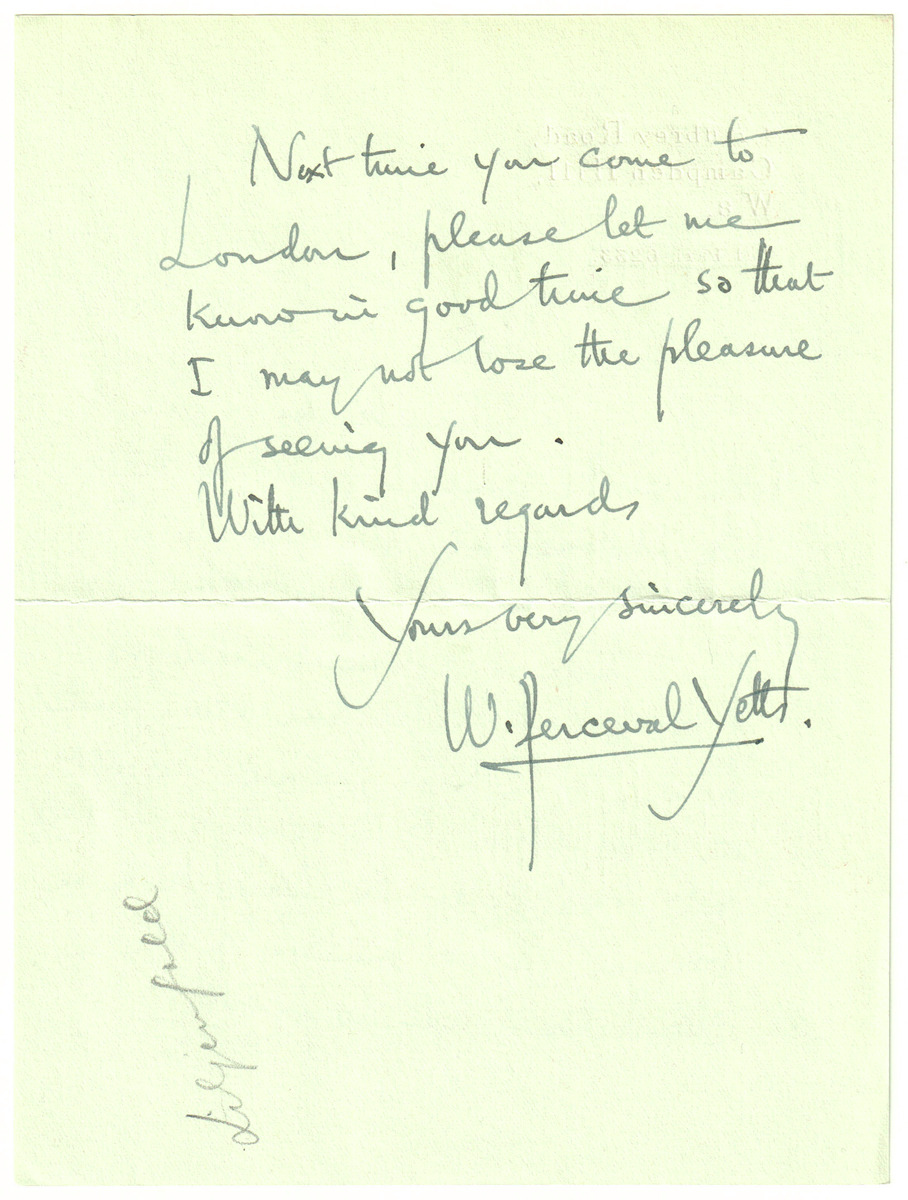 Next time you come to
London, please let me
know in good time so that
I may not lose the pleasure
of seeing you.
With kind regards
Yours very sincerely
W. Perceval Yetts.
Liljenfeld
Aubrey Road,
Campden Hill,
W.8.